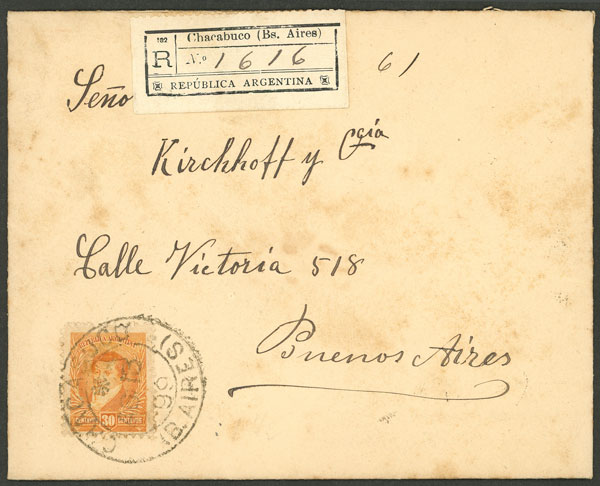 182 Chacabuco (Bs. Aires)
R Nº 1616
REPÚBLICA ARGENTINA
61
Seño
Kirchhoff y Cía
Calle Victoria 518
Buenos Aires
(B. AIRES)
99
30
CENTAVOS